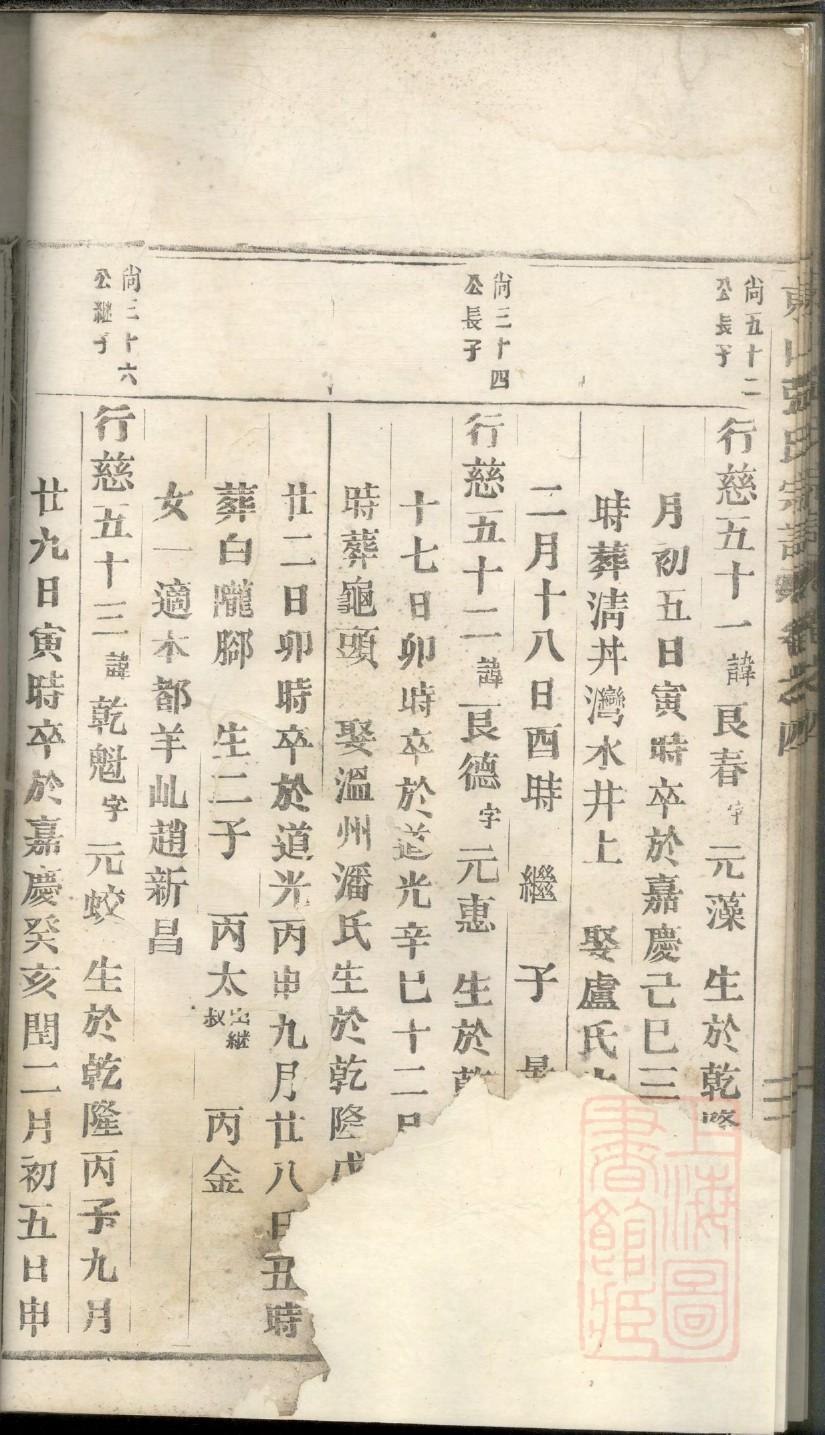 尚五十二
公長子
行慈五十一諱艮春字元藻 生於乾隆
月初五日寅時卒於嘉慶己巳三
時葬淸井灣水井上 娶盧氏
二月十八日酉時 繼子
尚三十四
公長子
行慈五十二諱艮德字元惠 生於乾
十七日卯時卒於道光辛巳十二月
時葬龜頭 娶溫州潘氏生於乾隆戊
廿二日卯時卒於道光丙申九月廿八日丑時
葬白隴腳 生二子 丙太出継叔 丙金
女一適本都羊乢趙新昌
尚三十六
公継子
行慈五十三諱乾魁字元蛟 生於乾隆丙子九月
廿九日寅時卒於嘉慶癸亥閏二月初五日申
上海圖
書館藏